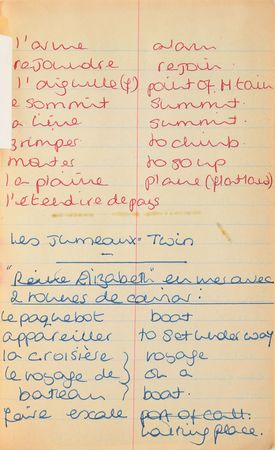 l'arme alarm
rejoindre rejoin.
l'aiguille (f) point of. Mtain
le sommit summit.
la cime summit.
grimper to climb.
monter to go up
la plaine plane (flatland)
l'etendre de pays
Les Jumeaux - Twin
"Reine Elizabeth" en mer avec
2 tonnes de caviar:
le paquebot boat
appareiller to set under way
la croisière } voyage
le voyage de } on a
bateau } boat.
faire escale port of call.
halting place.